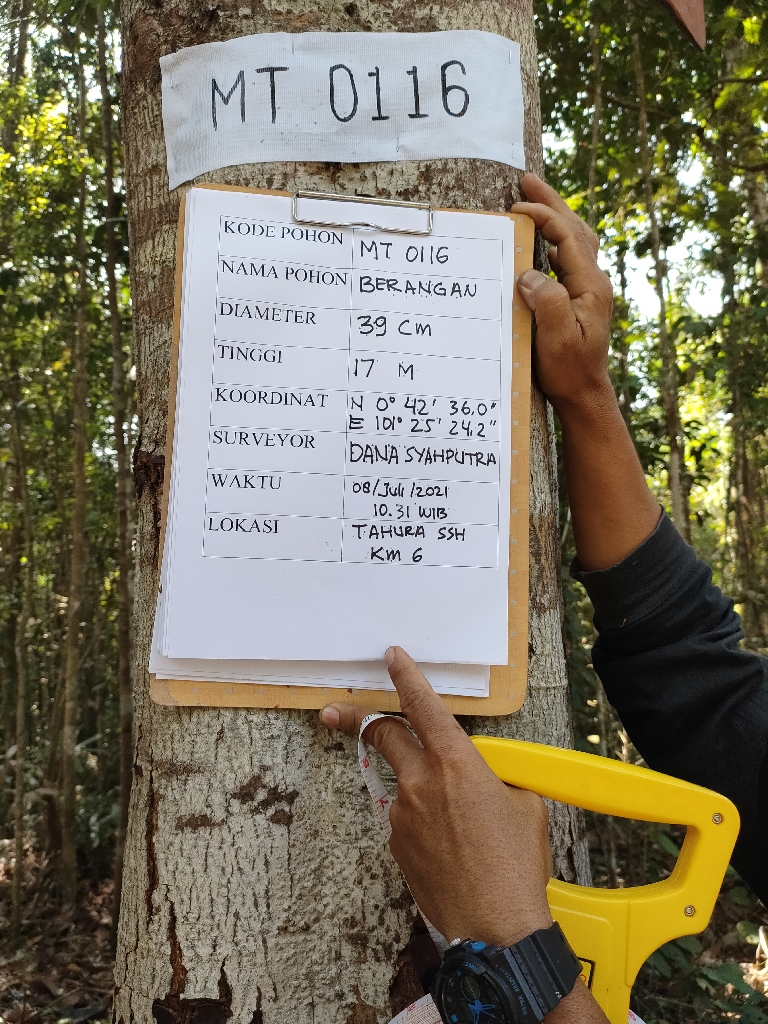 MT 0116
KODE POHON MT 0116
NAMA POHON BERANGAN
DIAMETER 39 Cm
TINGGI 17 M
KOORDINAT N 0° 42' 36.0"
E 101° 25' 24.2"
SURVEYOR DANA SYAHPUTRA
WAKTU 08/Juli/2021
10.31 WIB
LOKASI TAHURA SSH
Km 6